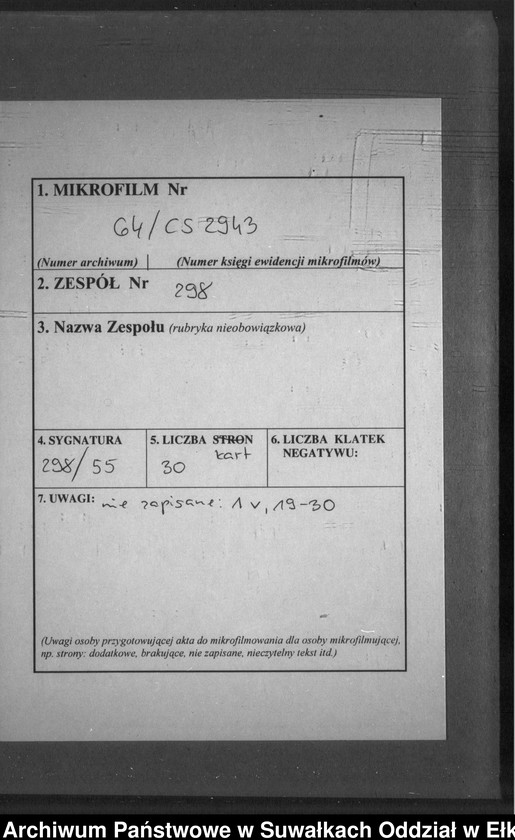 1. MIKROFILM Nr
64/CS 2943
(Numer archiwum) | (Numer księgi ewidencji mikrofilmów)
2. ZESPÓŁ Nr 298
3. Nazwa Zespołu (rubryka nieobowiązkowa)
4. SYGNATURA
298/55
5. LICZBA STRON
kart
30
6. LICZBA KLATEK
NEGATYWU:
7. UWAGI: nie zapisane: 1 v, 19-30
(Uwagi osoby przygotowującej akta do mikrofilmowania dla osoby mikrofilmującej,
np. strony: dodatkowe, brakujące, nie zapisane, nieczytelny tekst itd.)
Archiwum Państwowe w Suwałkach Oddział w Ełk